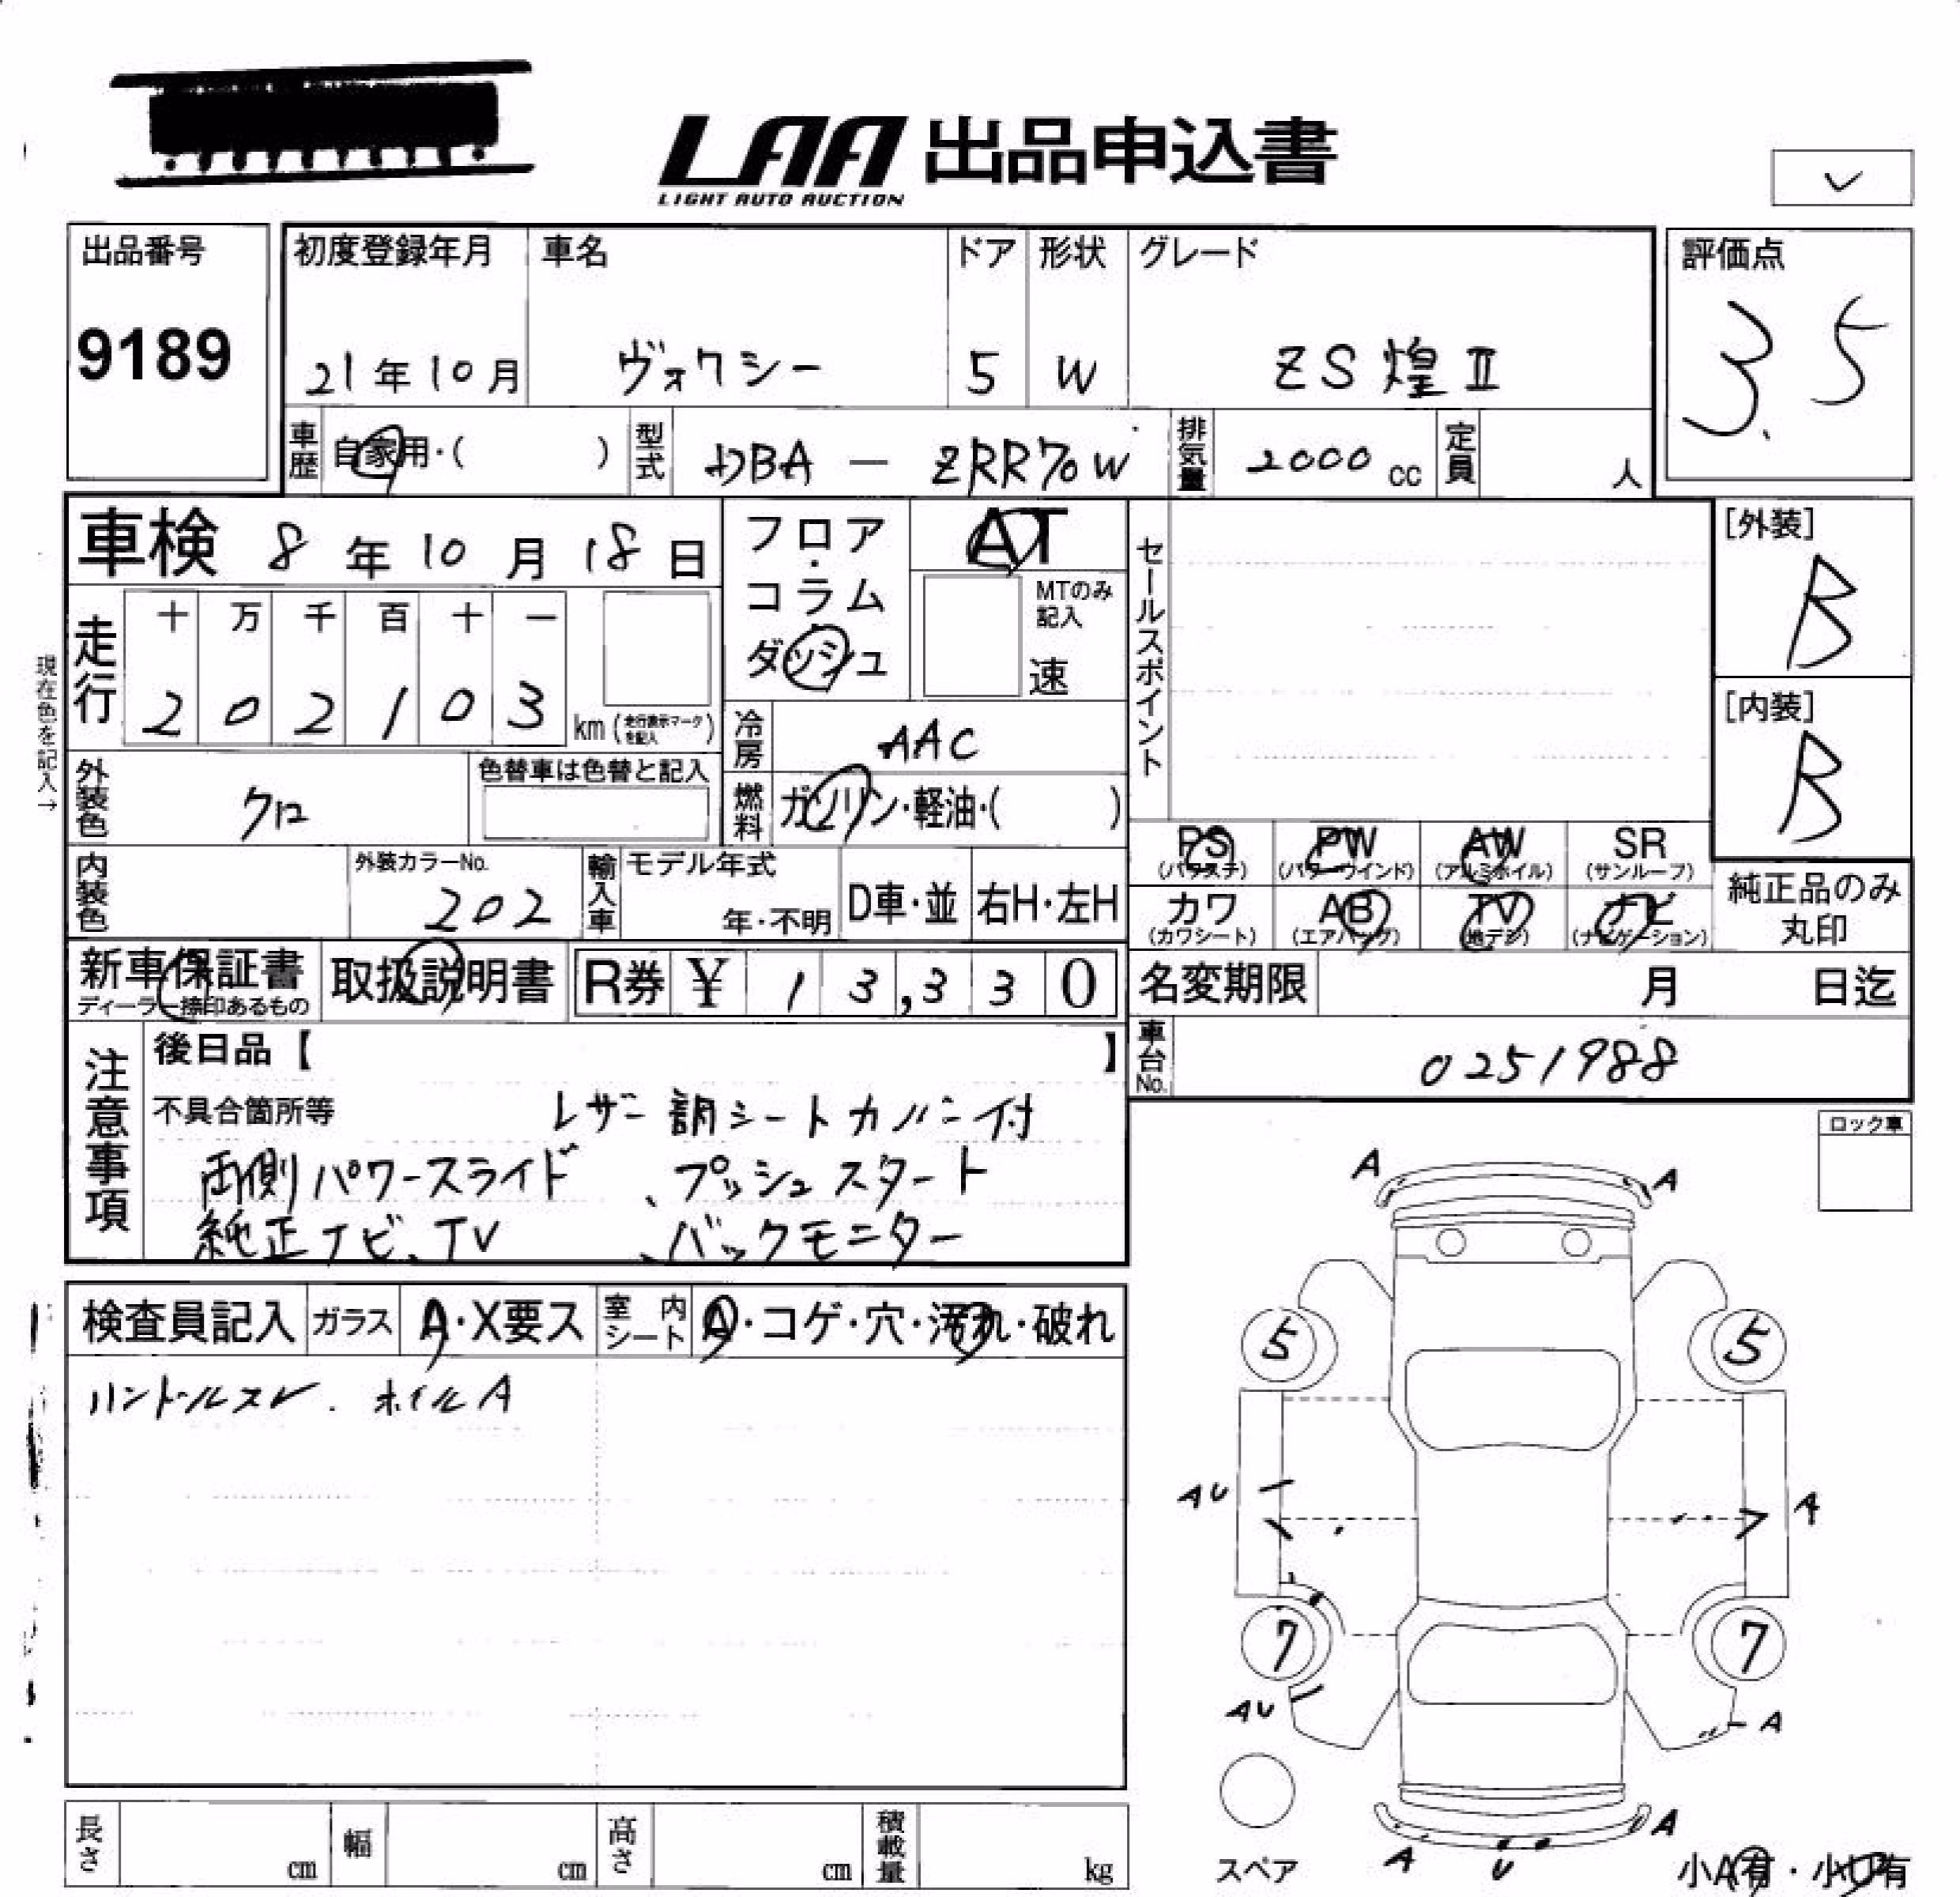 LAA 出品申込書
LIGHT AUTO AUCTION
✓
出品番号
9189
初度登録年月
21年10月
車名
ヴォクシー
ドア
5
形状
W
グレード
ZS 煌 Ⅱ
評価点
3.5
車歴
自家用・( )
型式
DBA － ZRR70W
排気量
2000 cc
定員
人
車検 8年10月18日
走行
十 万 千 百 十 一
2 0 2 1 0 3
km (走行表示マークを記入)
フロア・
コラム・
ダッシュ
AT
MTのみ
記入
速
セールスポイント
[外装]
B
[内装]
B
現在色を記入→
外装色
クロ
色替車は色替と記入
冷房
AAC
燃料
ガソリン・軽油・( )
内装色
外装カラーNo.
202
輸入車
モデル年式
年・不明
D車・並
右H・左H
PS
(パワステ)
PW
(パワーウインド)
AW
(アルミホイル)
SR
(サンルーフ)
カワ
(カワシート)
AB
(エアバッグ)
TV
(地デジ)
ナビ
(ナビゲーション)
純正品のみ
丸印
新車保証書
ディーラー捺印あるもの
取扱説明書
R券 ¥ 13,330
名変期限 月 日迄
車台No.
0251988
注意事項
後日品【 】
不具合箇所等
レザー調シートカバー付
両側パワースライド 、プッシュスタート
純正ナビ、TV 、バックモニター
ロック車
検査員記入
ガラス
A・X要ス
室内シート
A・コゲ・穴・汚れ・破れ
ハンドルスレ . ホイルA
A A
5 5
AU A
7 7
AU A
A
A U
スペア
小A有・小U有
長さ cm
幅 cm
高さ cm
積載量 kg